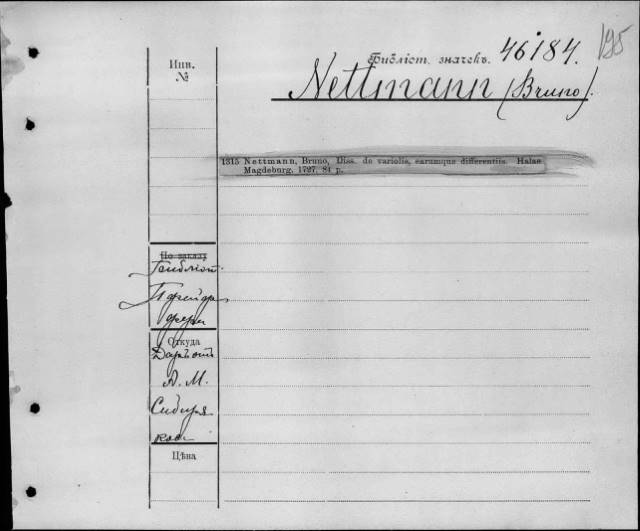 195
Библіот. значекъ. 46184.
Инв.
№
Nettmann (Bruno).
1315 Nettmann, Bruno, Diss. de variolis, earumque differentiis. Halae
Magdeburg. 1727. 84 p.
По заказу
Библіот.
Откуда
Даръ отъ
А. М.
Сибиря
кова
Цѣна